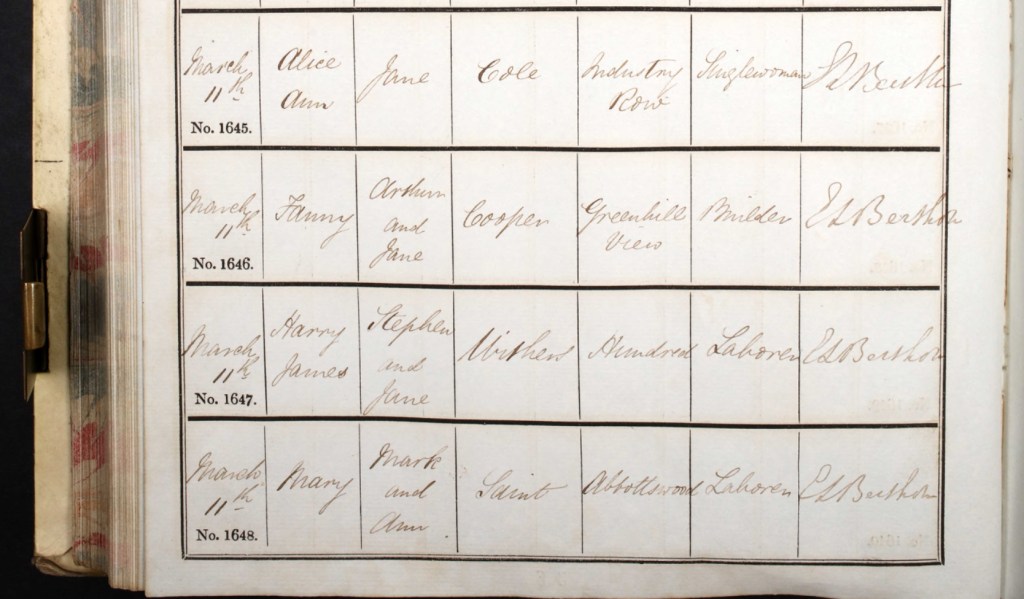 March 11th No. 1645. Alice Ann Jane Cole Industry Row Singlewoman E L Berthon
March 11th No. 1646. Fanny Arthur and Jane Cooper Greenhill View Builder E L Berthon
March 11th No. 1647. Harry James Stephen and Jane Withers Hundred Laborer E L Berthon
March 11th No. 1648. Mary Mark and Ann Saint Abbottswood Laborer E L Berthon